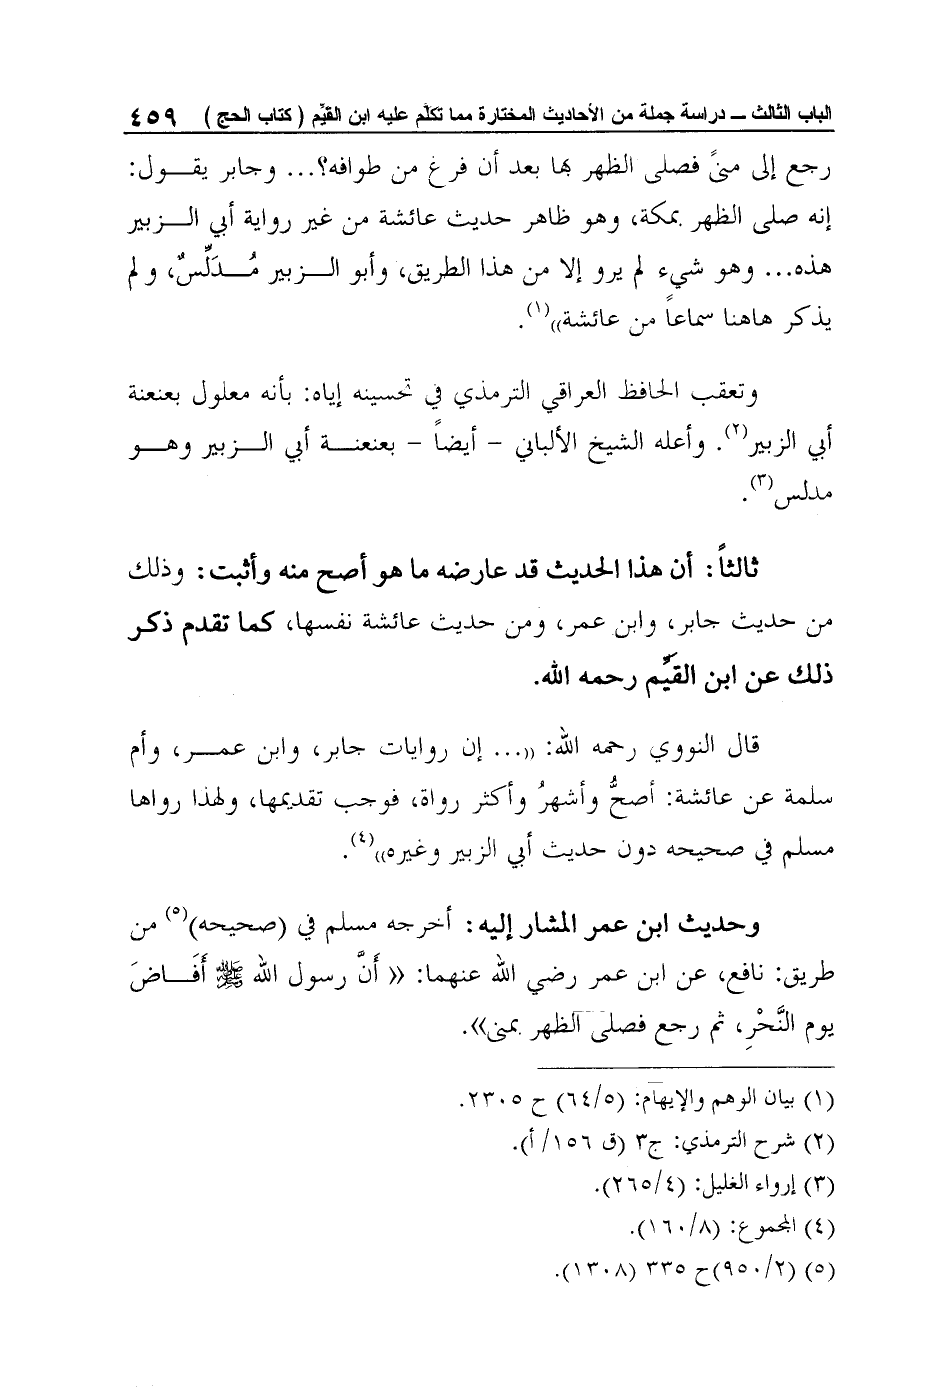 الباب الثالث ــ دراسة جملة من الأحاديث المختارة مما تكلّم عليه ابن القيّم ( كتاب الحج ) ٤٥٩
رجع إلى منىً فصلى الظهر بها بعد أن فرغ من طوافه؟... وجابر يقول:
إنه صلى الظهر بمكة، وهو ظاهر حديث عائشة من غير رواية أبي الزبير
هذه... وهو شيء لم يرو إلا من هذا الطريق، وأبو الزبير مُدَلِّسٌ، ولم
يذكر هاهنا سماعاً من عائشة»(١).
وتعقب الحافظ العراقي الترمذي في تحسينه إياه: بأنه معلول بعنعنة
أبي الزبير(٢). وأعله الشيخ الألباني - أيضاً - بعنعنة أبي الزبير وهو
مدلس(٣).
ثالثاً: أن هذا الحديث قد عارضه ما هو أصح منه وأثبت: وذلك
من حديث جابر، وابن عمر، ومن حديث عائشة نفسها، كما تقدم ذكر
ذلك عن ابن القيِّم رحمه الله.
قال النووي رحمه الله: «... إن روايات جابر، وابن عمر، وأم
سلمة عن عائشة: أصحُّ وأشهرُ وأكثر رواة، فوجب تقديمها، ولهذا رواها
مسلم في صحيحه دون حديث أبي الزبير وغيره»(٤).
وحديث ابن عمر المشار إليه: أخرجه مسلم في (صحيحه)(٥) من
طريق: نافع، عن ابن عمر رضي الله عنهما: « أَنَّ رسول الله ﷺ أَفَاضَ
يوم النَّحْرِ، ثم رجع فصلى الظهر بمنى».
(١) بيان الوهم والإيهام: (٦٤/٥) ح ٢٣٠٥.
(٢) شرح الترمذي: ج٣ (ق ١٥٦/ أ).
(٣) إرواء الغليل: (٢٦٥/٤).
(٤) المجموع: (١٦٠/٨).
(٥) (٩٥٠/٢)ح ٣٣٥ (١٣٠٨).